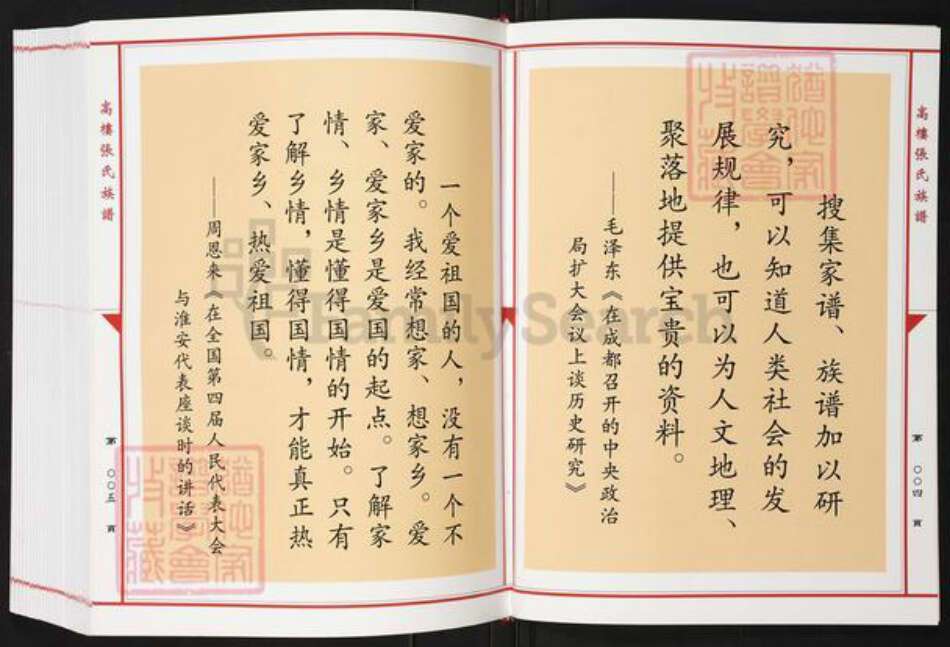 高樓張氏族譜
搜集家谱、族谱加以研
究，可以知道人类社会的发
展规律，也可以为人文地理、
聚落地提供宝贵的资料。
——毛泽东《在成都召开的中央政治
局扩大会议上谈历史研究》
第〇〇四頁
一个爱祖国的人，没有一个不
爱家的。我经常想家、想家乡。爱
家、爱家乡是爱国的起点。了解家
情、乡情是懂得国情的开始。只有
了解乡情，懂得国情，才能真正热
爱家乡、热爱祖国。
——周恩来《在全国第四届人民代表大会
与淮安代表座谈时的讲话》
高樓張氏族譜
第〇〇五頁
FamilySearch